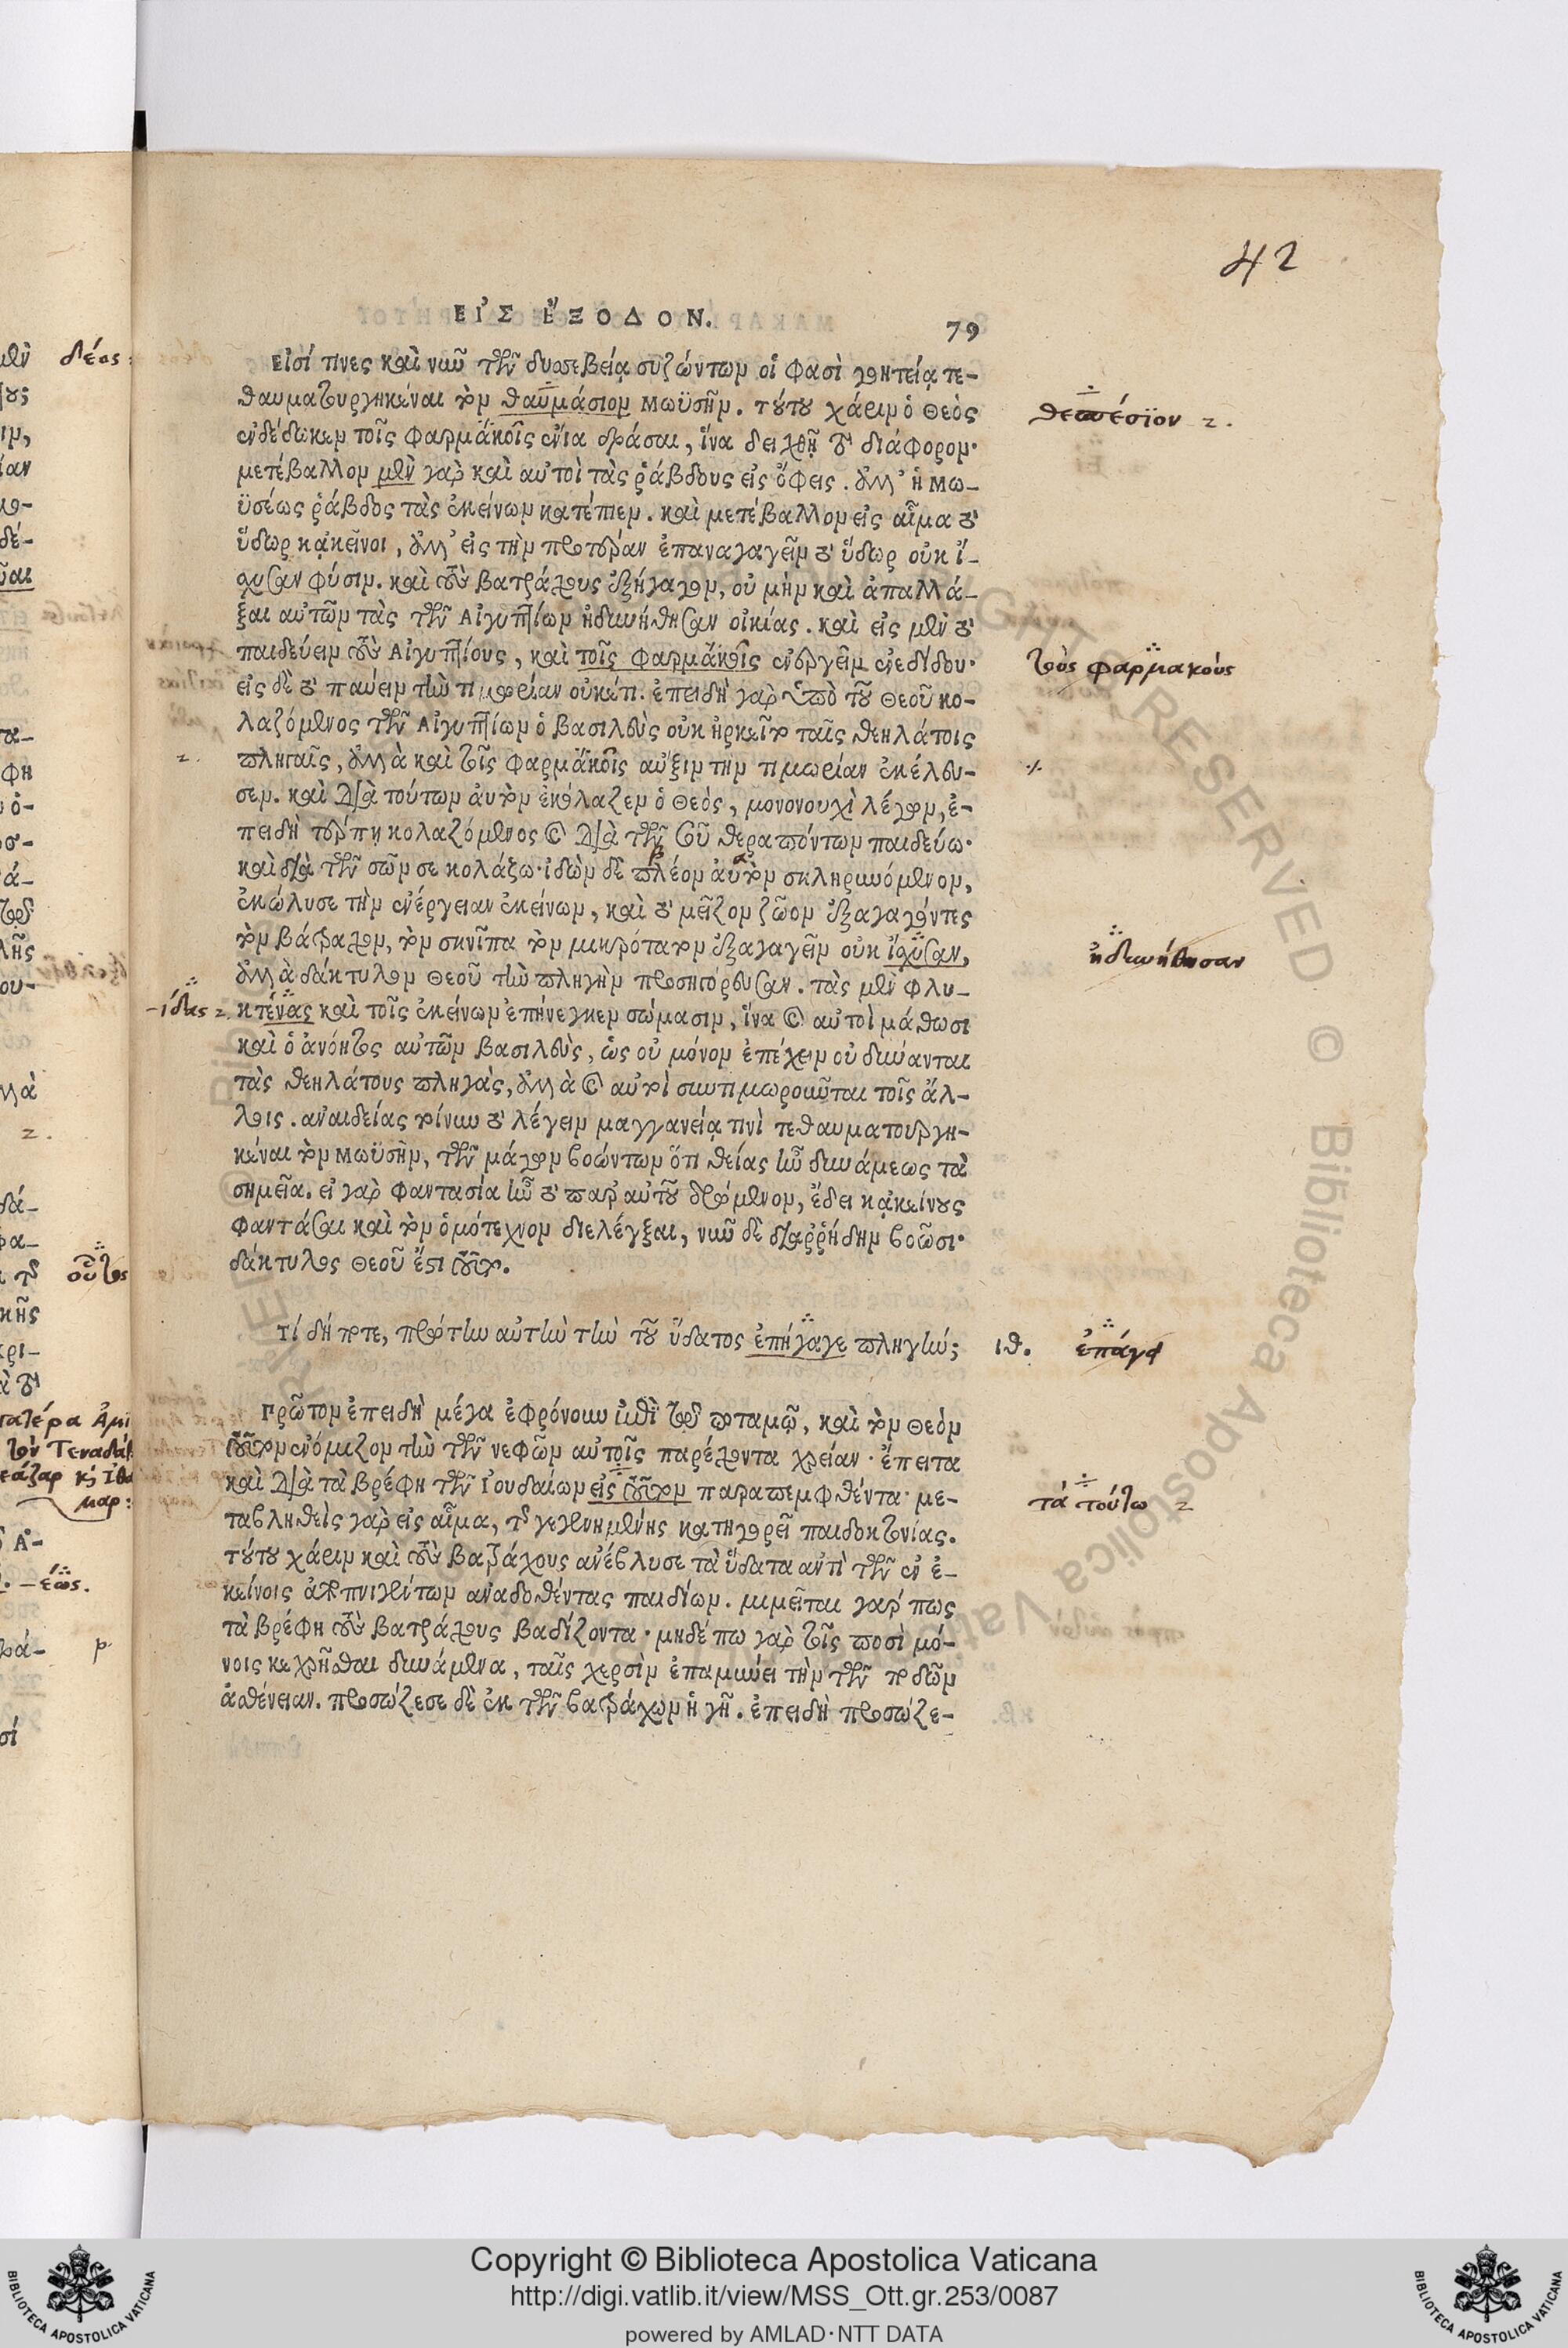 42
ΕΙ᾿Σ ἘΞΟΔΟΝ.
79
Εἰσί τινες καὶ νῦν τῶν δυσσεβείᾳ συζώντων οἵ φασὶ γοητείᾳ τε-
θαυματουργηκέναι τὸν θαυμάσιον Μωϋσῆν. τούτου χάριν ὁ Θεὸς
ἐνδέδωκεν τοῖς φαρμάκοις ἔνια δρᾶσαι, ἵνα δειχθῇ τὸ διάφορον·
μετέβαλλον μὲν γὰρ καὶ αὐτοὶ τὰς ῥάβδους εἰς ὄφεις. ἀλλ’ ἡ Μω-
ϋσέως ῥάβδος τὰς ἐκείνων κατέπιεν. καὶ μετέβαλλον εἰς αἷμα τὸ
ὕδωρ κᾀκεῖνοι, ἀλλ’ εἰς τὴν προτέραν ἐπαναγαγεῖν τὸ ὕδωρ οὐκ ἴ-
χυσαν φύσιν. καὶ τοὺς βατράχους ἐξήγαγον, οὐ μὴν καὶ ἀπαλλά-
ξαι αὐτῶν τὰς τῶν Αἰγυπτίων ἠδυνήθησαν οἰκίας. καὶ εἰς μὲν τὸ
παιδεύειν τοὺς Αἰγυπτίους, καὶ τοῖς φαρμάκοις ἐνεργεῖν ἐνεδίδου·
εἰς δὲ τὸ παύειν τὴν τιμωρίαν οὐκέτι. ἐπειδὴ γὰρ ὑπὸ τοῦ Θεοῦ κο-
λαζόμενος τῶν Αἰγυπτίων ὁ βασιλεὺς οὐκ ἠρκεῖτο ταῖς θεηλάτοις
πληγαῖς, ἀλλὰ καὶ τοῖς φαρμάκοις αὔξιν τὴν τιμωρίαν ἐκέλευ-
σεν. καὶ διὰ τούτων αὐτὸν ἐκόλαζεν ὁ Θεὸς, μονονουχὶ λέγων, ἐ-
πειδὴ τέρπῃ κολαζόμενος καὶ διὰ τῶν τοῦ θεραπόντων παιδεύω·
καὶ διὰ τῶν σῶν σε κολάζω· ἰδὼν δὲ πλέον αὐτὸν σκληρυνόμενον,
ἐκώλυσε τὴν ἐνέργειαν ἐκείνων, καὶ τὸ μεῖζον ζῶον ἐξαγαγόντες
τὸν βάτραχον, τὸν σκνῖπα τὸν μικρότατον ἐξαγαγεῖν οὐκ ἴσχυσαν,
ἀλλὰ δάκτυλον Θεοῦ τὴν πληγὴν προσηγόρευσαν. τὰς μὲν φλυ-
κτένας καὶ τοῖς ἐκείνων ἐπήνεγκεν σώμασιν, ἵνα καὶ αὐτοὶ μάθωσι
καὶ ὁ ἀνόητος αὐτῶν βασιλεὺς, ὡς οὐ μόνον ἐπέχειν οὐ δύνανται
τὰς θεηλάτους πληγὰς, ἀλλὰ καὶ αὐτοὶ συντιμωροῦνται τοῖς ἄλ-
λοις. ἀναιδείας τοίνυν τὸ λέγειν μαγγανείᾳ τινὶ τεθαυματουργη-
κέναι τὸν Μωϋσῆν, τῶν μάγων βοώντων ὅτι θείας ἦν δυνάμεως τὰ
σημεῖα. εἰ γὰρ φαντασία ἦν τὸ παρ’ αὐτοῦ δρώμενον, ἔδει κᾀκείνους
φαντάσαι καὶ τὸν ὁμότεχνον διελέγξαι, νῦν δὲ διαῤῥήδην βοῶσι·
δάκτυλος Θεοῦ ἐστι τοῦτο.
Τί δή ποτε, πρώτην αὐτὴν τὴν τοῦ ὕδατος ἐπήγαγε πληγήν;
Πρῶτον ἐπειδὴ μέγα ἐφρόνουν ἐπὶ τῷ ποταμῷ, καὶ τὸν Θεὸν
τοῦτον ἐνόμιζον τὴν τῶν νεφῶν αὐτοῖς παρέχοντα χρείαν· ἔπειτα
καὶ διὰ τὰ βρέφη τῶν Ἰουδαίων εἰς τοῦτον παραπεμφθέντα· με-
ταβληθεὶς γὰρ εἰς αἷμα, τῆς γεγενημένης κατηγορεῖ παιδοκτονίας.
τούτου χάριν καὶ τοὺς βατράχους ἀνέβλυσε τὰ ὕδατα ἀντὶ τῶν ἐν ἐ-
κείνοις ἀποπνιγέντων ἀναδοθέντας παιδίων. μιμεῖται γάρ πως
τὰ βρέφη τοὺς βατράχους βαδίζοντα· μηδέπω γὰρ τοῖς ποσὶ μό-
νοις κεχρῆσθαι δυνάμενα, ταῖς χερσὶν ἐπαμύνει τὴν τῶν ποδῶν
ἀσθένειαν. προσώζεσε δὲ ἐκ τῶν βατράχων ἡ γῆ. ἐπειδὴ προσώζε-
θεσπέσϊον
τοὺς φαρμακούς
ἠδυνήθησαν
-ίδας
ιθ.
ἐπάγει
τὰ τούτω
δέος
οὗτος
-έως.
Copyright © Biblioteca Apostolica Vaticana
http://digi.vatlib.it/view/MSS_Ott.gr.253/0087
powered by AMLAD·NTT DATA
BIBLIOTECA APOSTOLICA VATICANA
BIBLIOTECA APOSTOLICA VATICANA